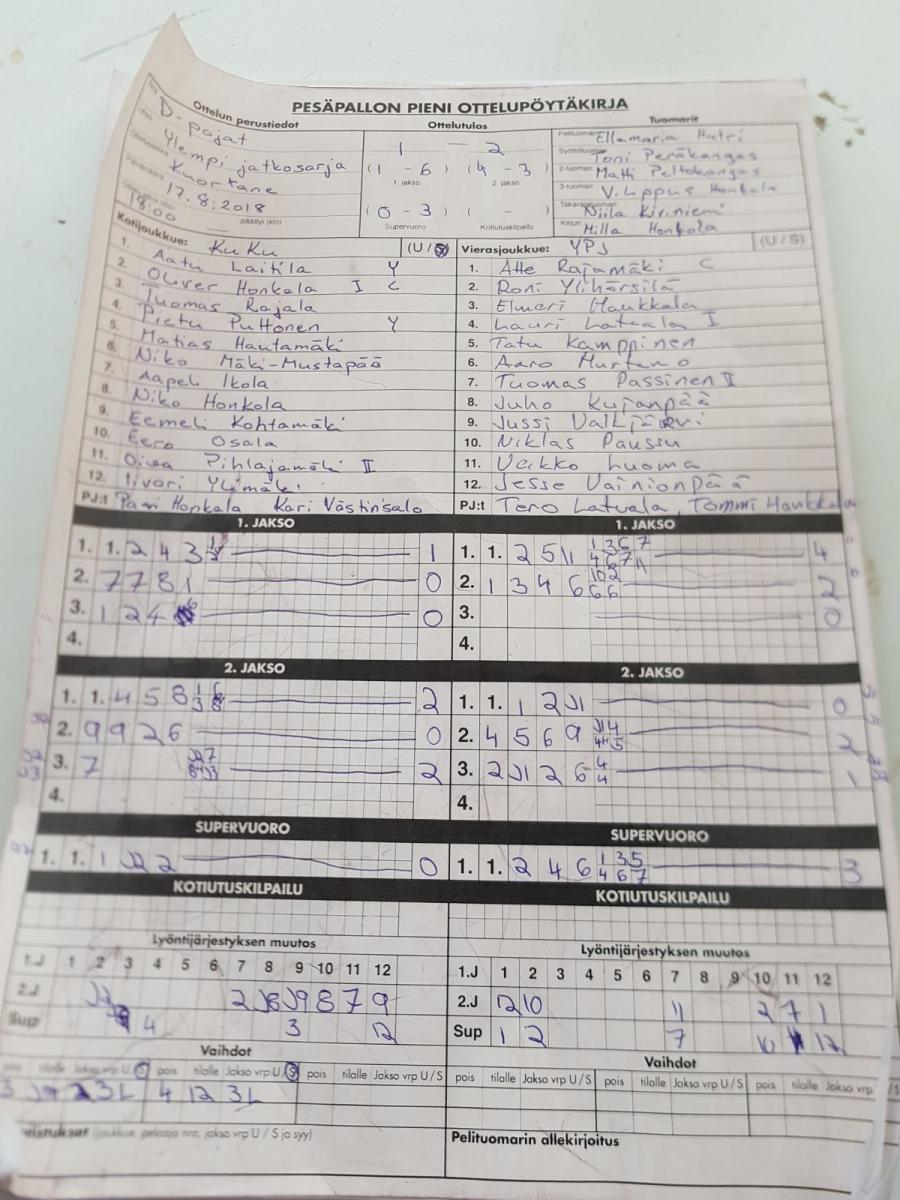 PESÄPALLON PIENI OTTELUPÖYTÄKIRJA
Ottelun perustiedot
Ottelutulos
Tuomarit
D-pojat
Ylempi jatkosarja
Kuortane
17.8.2018
18:00
päättyi (klo)
1 — 2
(1 - 6) (4 - 3)
1. jakso 2. jakso
(0 - 3) ( - )
Supervuoro Kotiutuskilpailu
Pelituomari Ellamaria Hatri
Syöttötuomari Toni Peräkangas
2-tuomari Matti Peltokangas
3-tuomari Vilppus Honkala
Takarajatuomari Niila Kiriniemi
Kirjuri Milla Honkola
Kotijoukkue: KuKu (U/S)
1. Aatu Laitila Y
2. Oliver Honkala I C
3. Tuomas Rajala
4. Pietu Puttonen Y
5. Matias Hautamäki
6. Niko Mäki-Mustapää
7. Aapeli Ikola
8. Niko Honkola
9. Eemeli Kohtamäki
10. Eero Osala
11. Oiva Pihlajamäki II
12. Iivari Ylimäki
PJ:t Pasi Honkala Kari Västinsalo
Vierasjoukkue: YPJ (U/S)
1. Atte Rajamäki C
2. Roni Ylihärsilä
3. Elmeri Haukkala
4. Lauri Latvala I
5. Tatu Kamppinen
6. Aaro
7. Tuomas Passinen II
8. Juho Kujanpää
9. Jussi Valkjärvi
10. Niklas Paussu
11. Veikko Luoma
12. Jesse Vainionpää
PJ:t Tero Latvala, Tommi Haukkala
1. JAKSO
1. 1. 2 4 3 1
2. 7 7 8 1 0
3. 1 2 4 0
4.
1. JAKSO
1. 1. 2 5 11 1 3 6 7 4 6 7 11 4
2. 1 3 4 6 10 2 6 6 2
3. 0
4.
2. JAKSO
1. 1. 4 5 8 1 6 3 8 2
2. 9 9 2 6 0
3. 7 2
4.
2. JAKSO
1. 1. 1 2 J1 0
2. 4 5 6 9 J1 4 5 2
3. 2 J1 2 6 4 4 1
4.
SUPERVUORO
1. 1. 1 J2 2 0
SUPERVUORO
1. 1. 2 4 6 1 3 5 4 6 7 3
KOTIUTUSKILPAILU
KOTIUTUSKILPAILU
Lyöntijärjestyksen muutos
1.J 1 2 3 4 5 6 7 8 9 10 11 12
2.J J2 2 J8 J9 8 7 9
Sup 4 3 12
Lyöntijärjestyksen muutos
1.J 1 2 3 4 5 6 7 8 9 10 11 12
2.J 12 10 11 2 7 1
Sup 1 2 7 10 11 12
Vaihdot
tilalle Jakso vrp U S pois tilalle Jakso vrp U/S pois tilalle Jakso vrp U / S
3L 4 12 3L
Vaihdot
pois tilalle Jakso vrp U/S pois tilalle Jakso vrp U/S pois tilalle Jakso vrp U/S
(joukkue, pelaaja nro, jakso vrp U / S ja syy)
Pelituomarin allekirjoitus